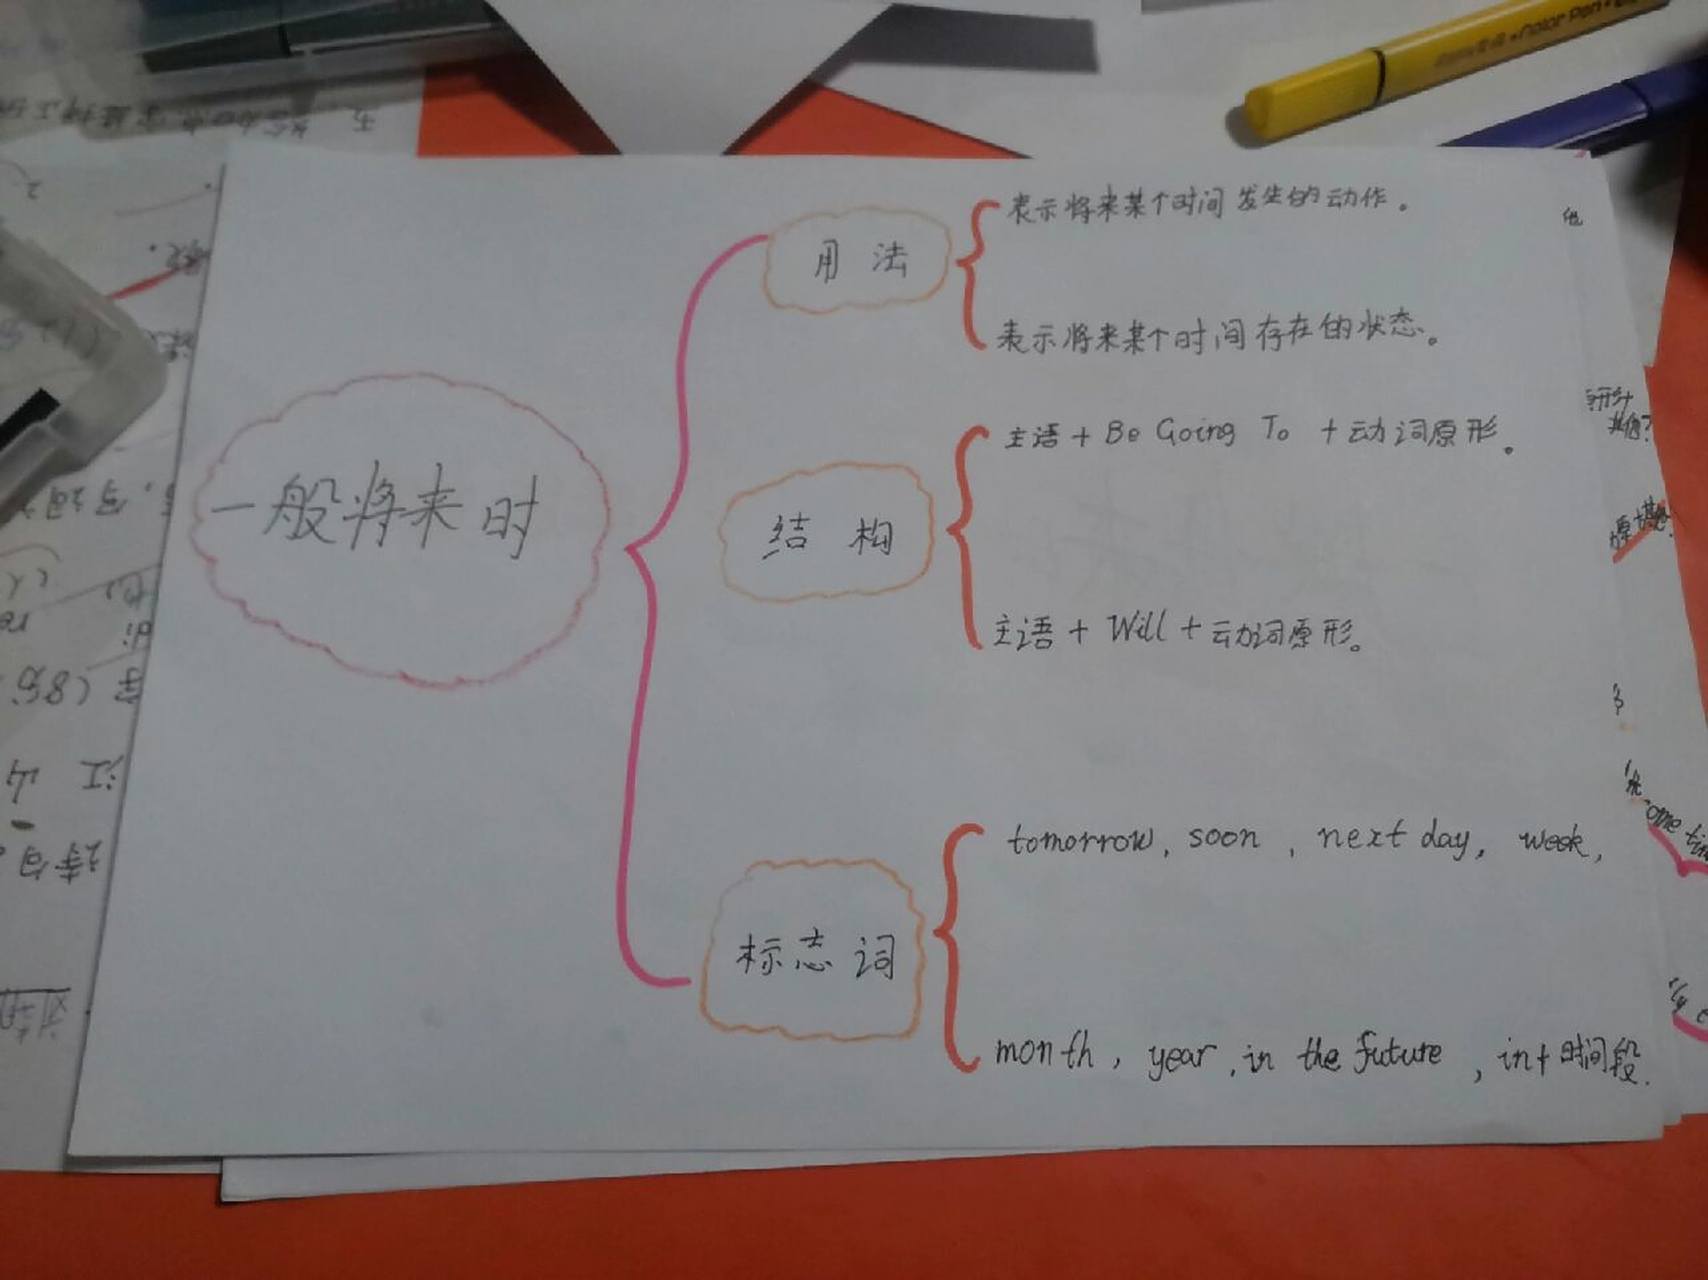 用法
表示将来某个时间发生的动作。
表示将来某个时间存在的状态。
一般将来时
结构
主语 + Be Going To + 动词原形。
主语 + Will + 动词原形。
标志词
tomorrow, soon, next day, week,
month, year, in the future, in+时间段.